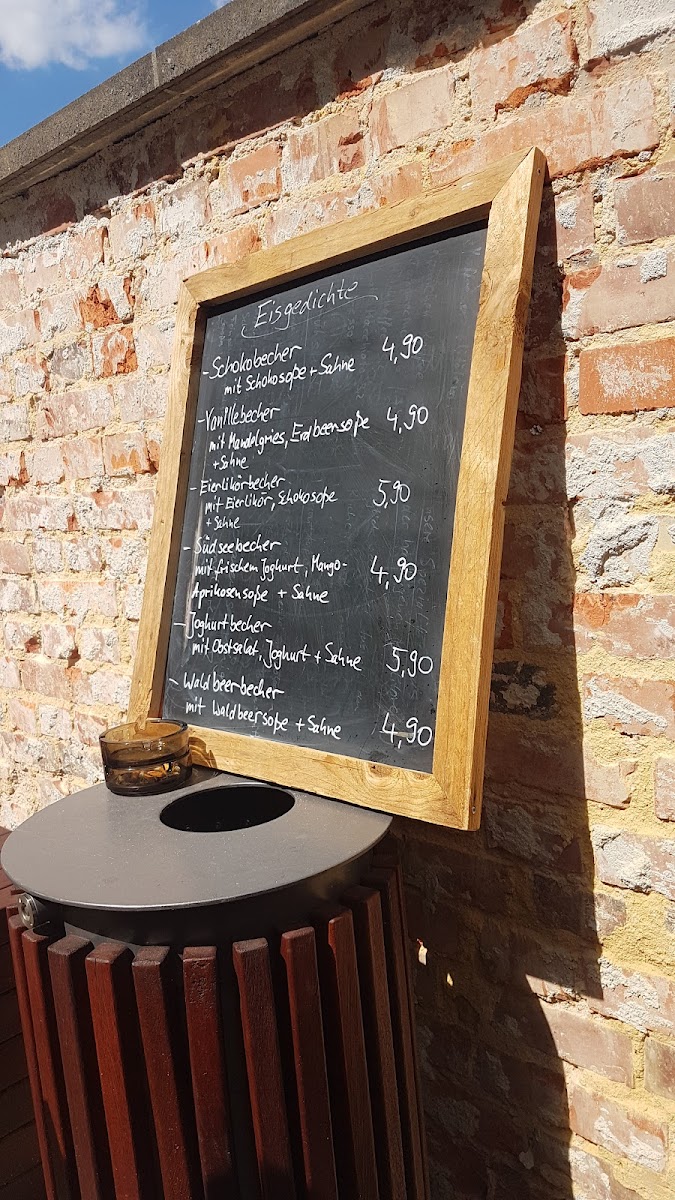 Eisgedichte
- Schokobecher 4,90
mit Schokosoße + Sahne
- Vanillebecher 4,90
mit Mandelgries, Erdbeersoße
+ Sahne
- Eierlikörbecher
mit Eierlikör, Schokosoße 5,90
+ Sahne
- Südseebecher
mit frischem Joghurt, Mango- 4,90
Aprikosensoße + Sahne
- Joghurtbecher
mit Obstsalat, Joghurt + Sahne 5,90
- Waldbeerbecher
mit Waldbeersoße + Sahne 4,90